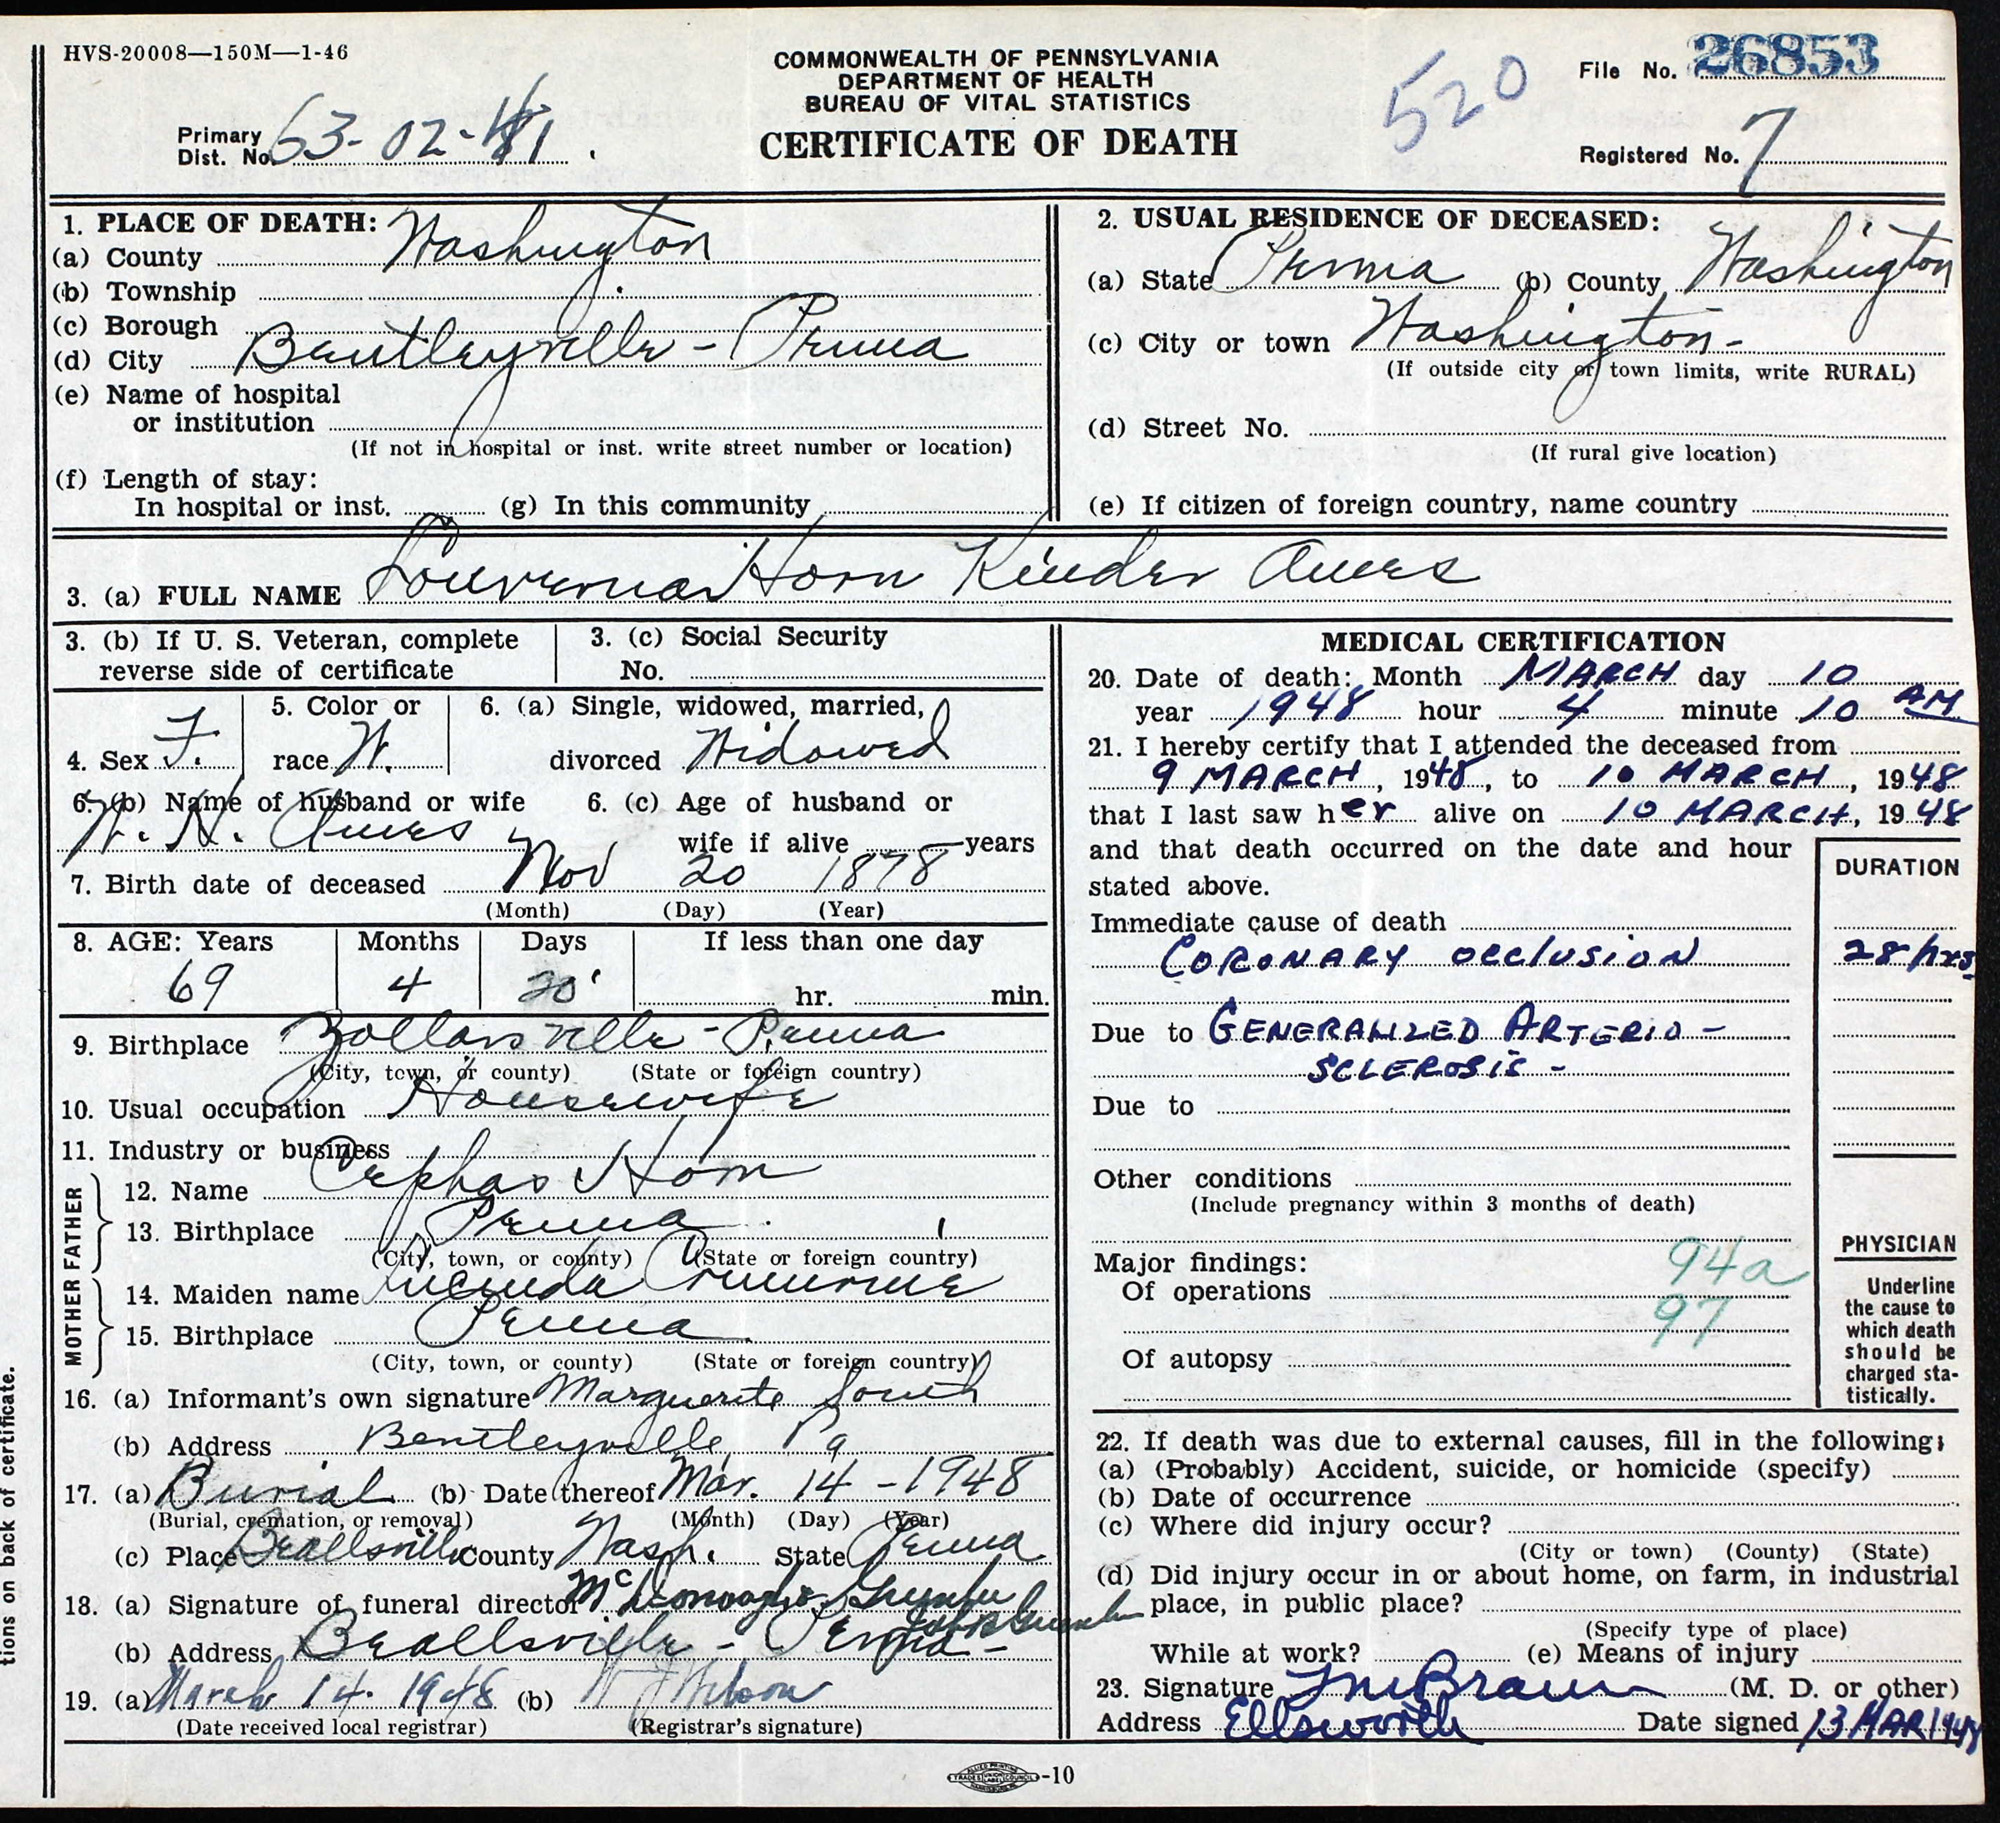 HVS-20008—150M—1-46
COMMONWEALTH OF PENNSYLVANIA
DEPARTMENT OF HEALTH
BUREAU OF VITAL STATISTICS
CERTIFICATE OF DEATH
520
File No. 26853
Primary
Dist. No. 63-02-41
Registered No. 7
1. PLACE OF DEATH:
(a) County Washington
(b) Township
(c) Borough
(d) City Bentleyville - Penna
(e) Name of hospital
or institution
(If not in hospital or inst. write street number or location)
(f) Length of stay:
In hospital or inst. (g) In this community
2. USUAL RESIDENCE OF DECEASED:
(a) State Penna (b) County Washington
(c) City or town Washington-
(If outside city or town limits, write RURAL)
(d) Street No.
(If rural give location)
(e) If citizen of foreign country, name country
3. (a) FULL NAME Louverna Horn Kinder Ames
3. (b) If U. S. Veteran, complete
reverse side of certificate
3. (c) Social Security
No.
4. Sex F.
5. Color or
race W.
6. (a) Single, widowed, married,
divorced Widowed
6. (b) Name of husband or wife
W. H. Ames
6. (c) Age of husband or
wife if alive years
7. Birth date of deceased Nov 20 1878
(Month) (Day) (Year)
8. AGE: Years Months Days If less than one day
69 4 20 hr. min.
9. Birthplace Zollarsville - Penna
(City, town, or county) (State or foreign country)
10. Usual occupation Housewife
11. Industry or business
FATHER
12. Name Cephas Horn
13. Birthplace Penna
(City, town, or county) (State or foreign country)
MOTHER
14. Maiden name Lucinda Crumrine
15. Birthplace Penna
(City, town, or county) (State or foreign country)
16. (a) Informant's own signature Marguerite South
(b) Address Bentleyville, Pa
17. (a) Burial (b) Date thereof Mar. 14 - 1948
(Burial, cremation, or removal) (Month) (Day) (Year)
(c) Place Beallsville County Wash. State Penna
18. (a) Signature of funeral director
(b) Address Beallsville - Penna -
19. (a) March 14. 1948 (b) Wilson
(Date received local registrar) (Registrar's signature)
MEDICAL CERTIFICATION
20. Date of death: Month MARCH day 10
year 1948 hour 4 minute 10 AM
21. I hereby certify that I attended the deceased from
9 MARCH, 1948, to 10 MARCH, 1948
that I last saw her alive on 10 MARCH, 1948
and that death occurred on the date and hour
stated above.
DURATION
Immediate cause of death
CORONARY OCCLUSION 28 hrs.
Due to GENERALIZED ARTERIO-
SCLEROSIS -
Due to
Other conditions
(Include pregnancy within 3 months of death)
Major findings: 94a
Of operations
97
Of autopsy
PHYSICIAN
Underline
the cause to
which death
should be
charged sta-
tistically.
22. If death was due to external causes, fill in the following:
(a) (Probably) Accident, suicide, or homicide (specify)
(b) Date of occurrence
(c) Where did injury occur?
(City or town) (County) (State)
(d) Did injury occur in or about home, on farm, in industrial
place, in public place?
(Specify type of place)
While at work? (e) Means of injury
23. Signature (M. D. or other)
Address Ellsworth Date signed 13 MAR 1948
tions on back of certificate.
-10